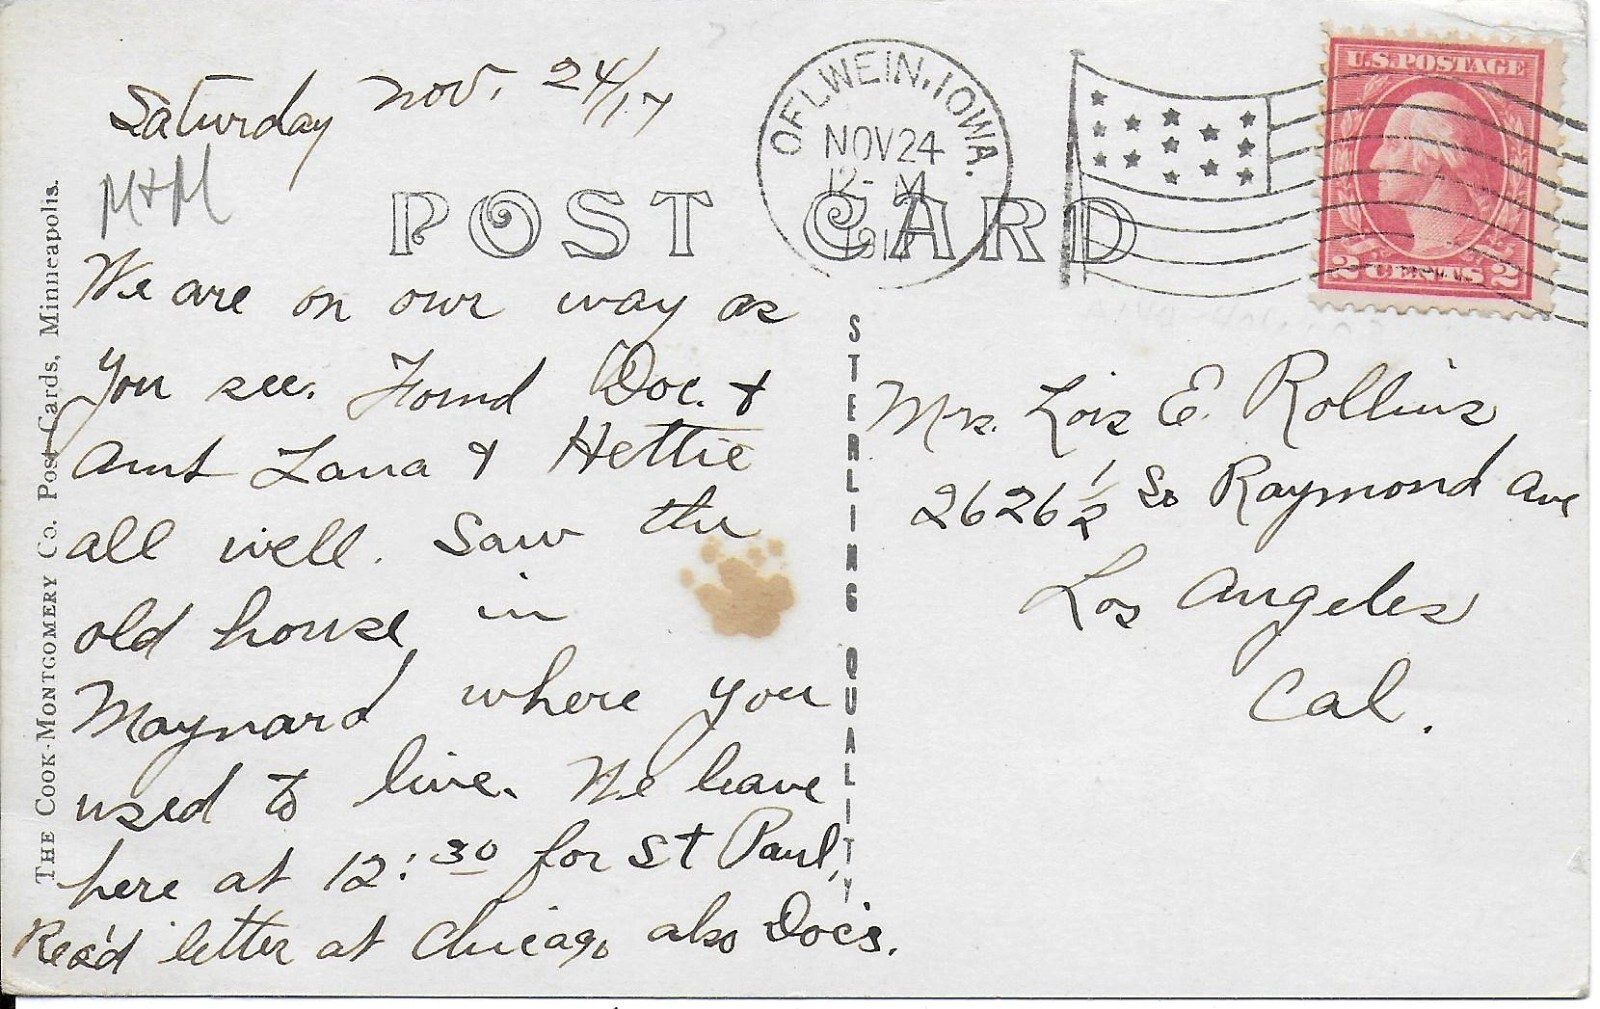 Saturday Nov. 24/17
M+M
POST CARD
We are on our way as
you see. Found Doc. +
Aunt Lana + Hettie
all well. Saw the
old house in
Maynard where you
used to live. We leave
here at 12:30 for St Paul,
Rec'd letter at Chicago also Doc's.
THE COOK-MONTGOMERY CO. Post Cards, Minneapolis.
STERLING QUALITY
OELWEIN, IOWA.
NOV 24
12-M
1917
U.S. POSTAGE
2 CENTS 2
Mrs. Lois E. Rollins
2626 1/2 So Raymond Ave
Los Angeles
Cal.